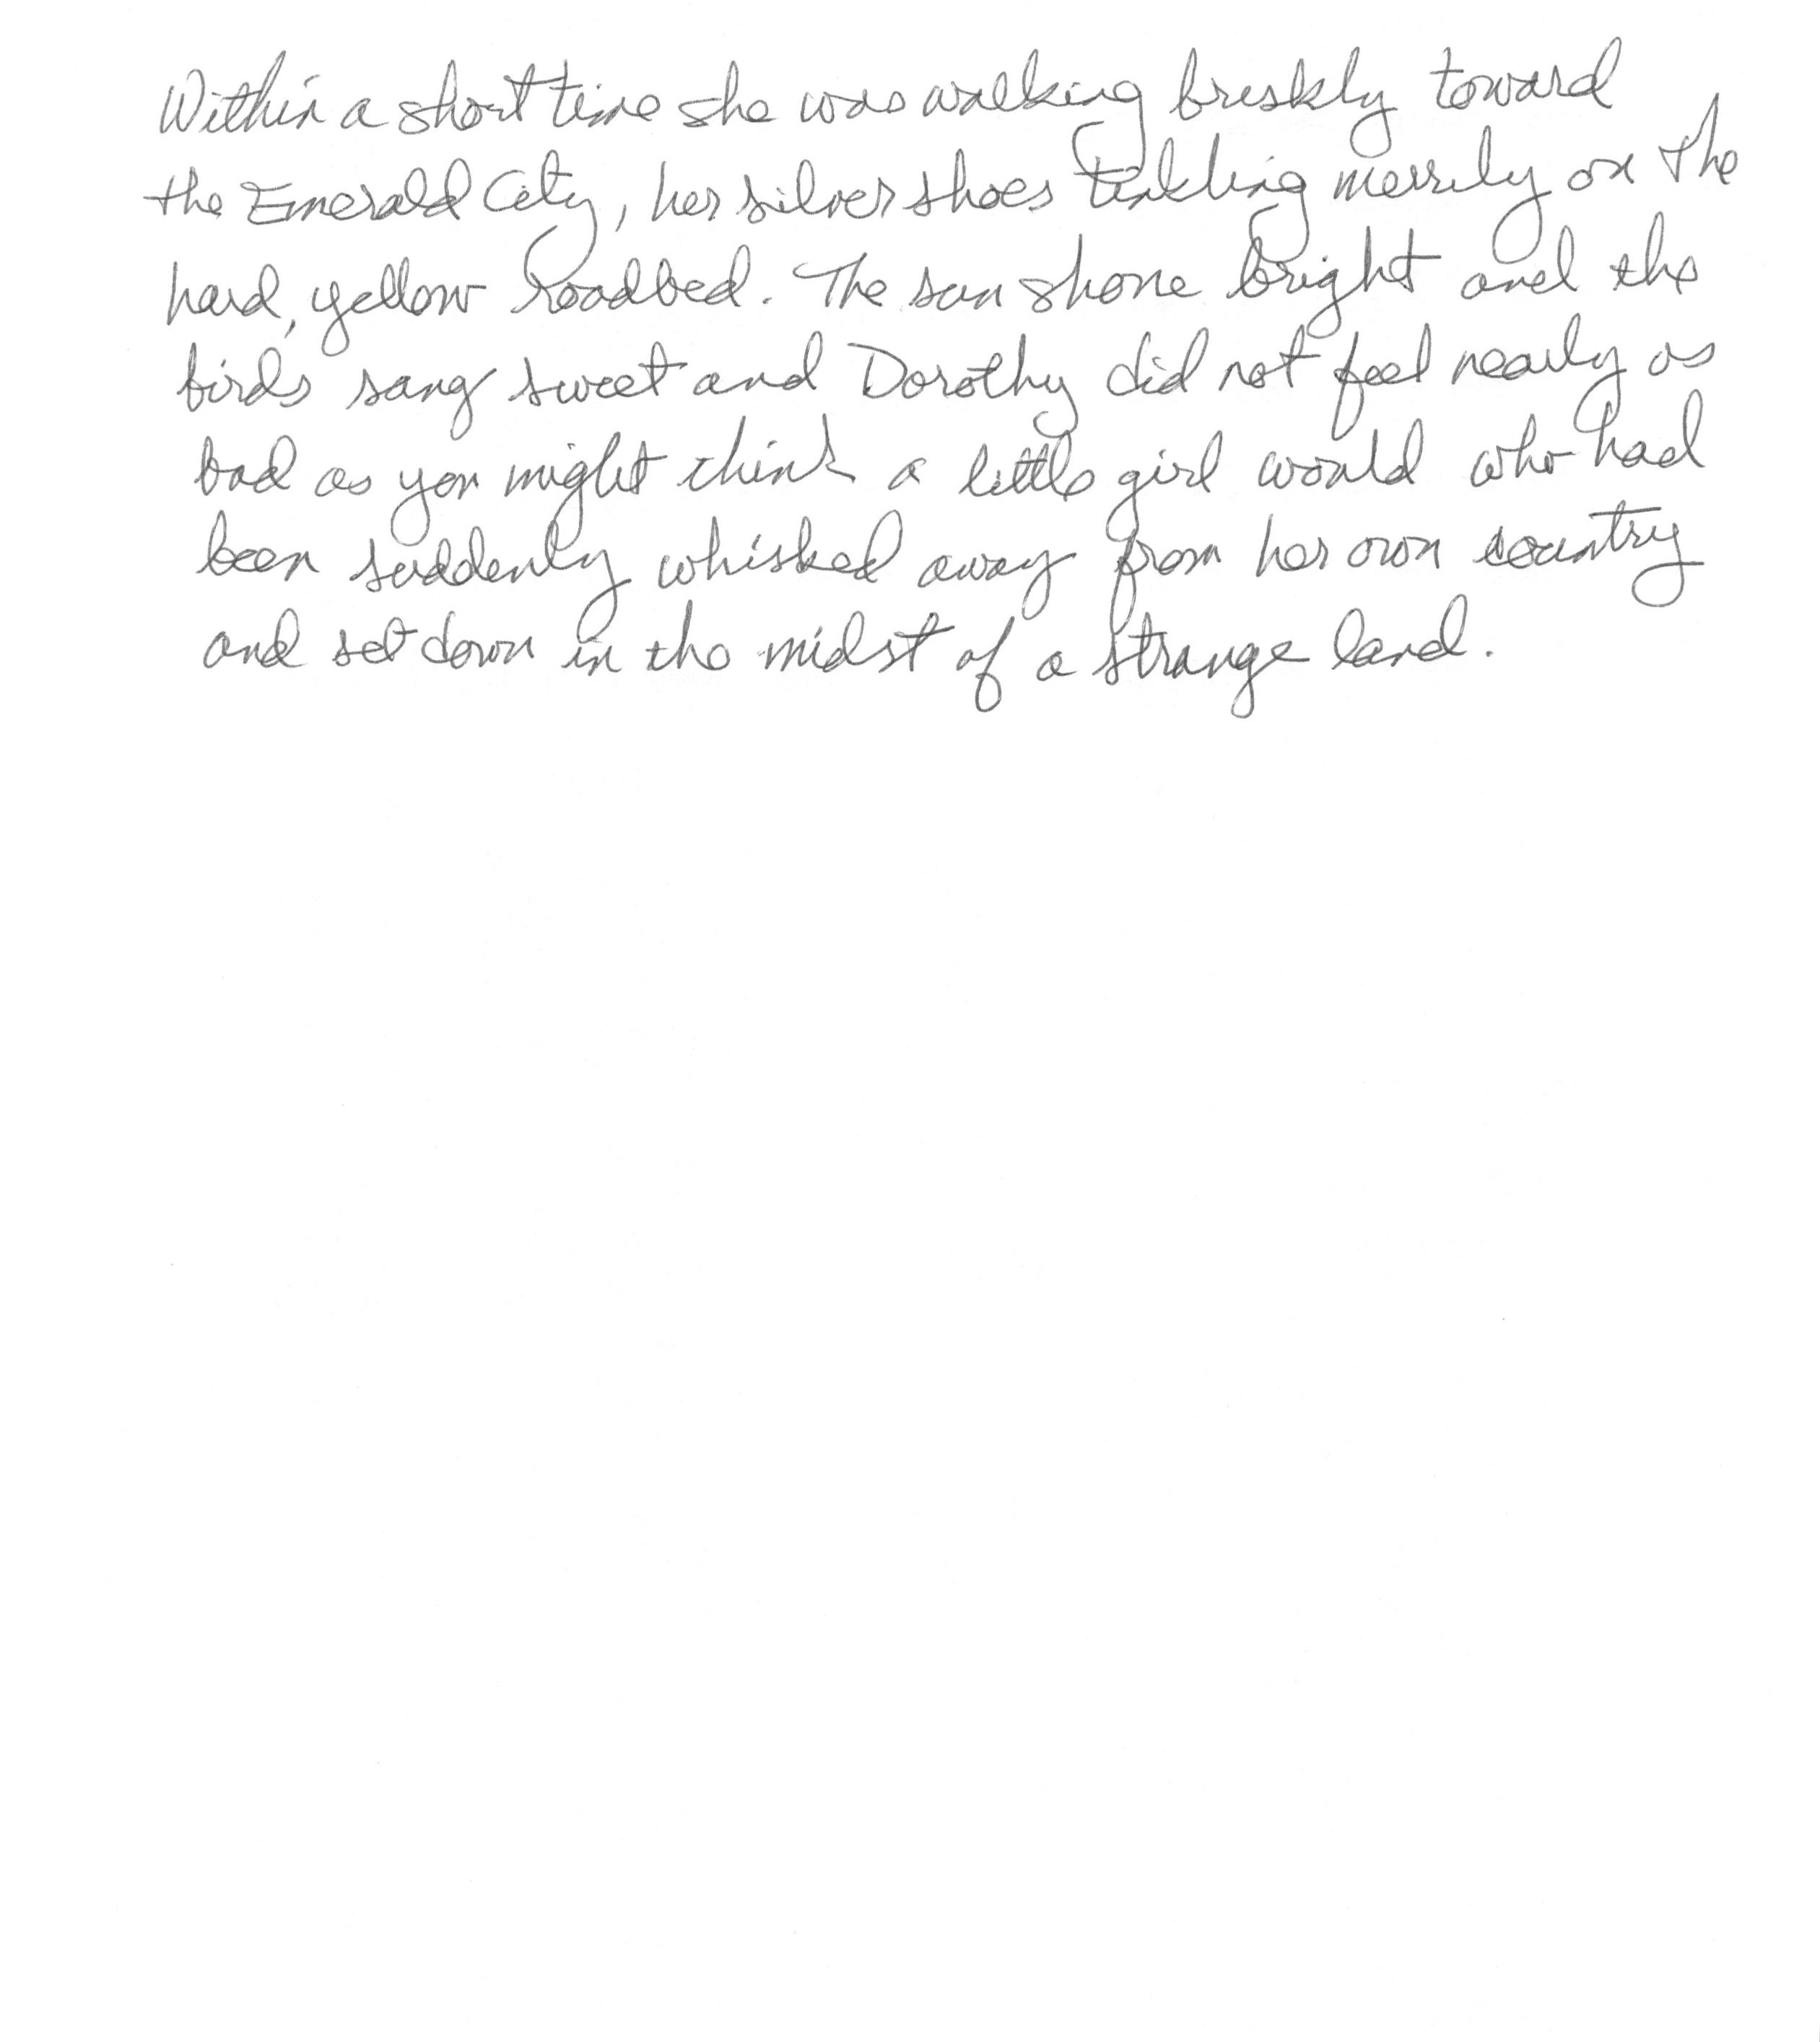 Within a short time she was walking briskly toward
the Emerald City, her silver shoes tinkling merrily on the
hard, yellow roadbed. The sun shone bright and the
birds sang sweet and Dorothy did not feel nearly as
bad as you might think a little girl would who had
been suddenly whisked away from her own country
and set down in the midst of a strange land.